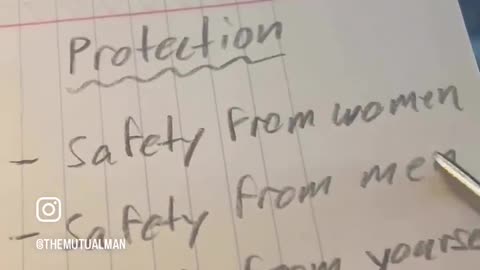 Protection
- Safety From women
- Safety from men
from yourse
@THEMUTUALMAN